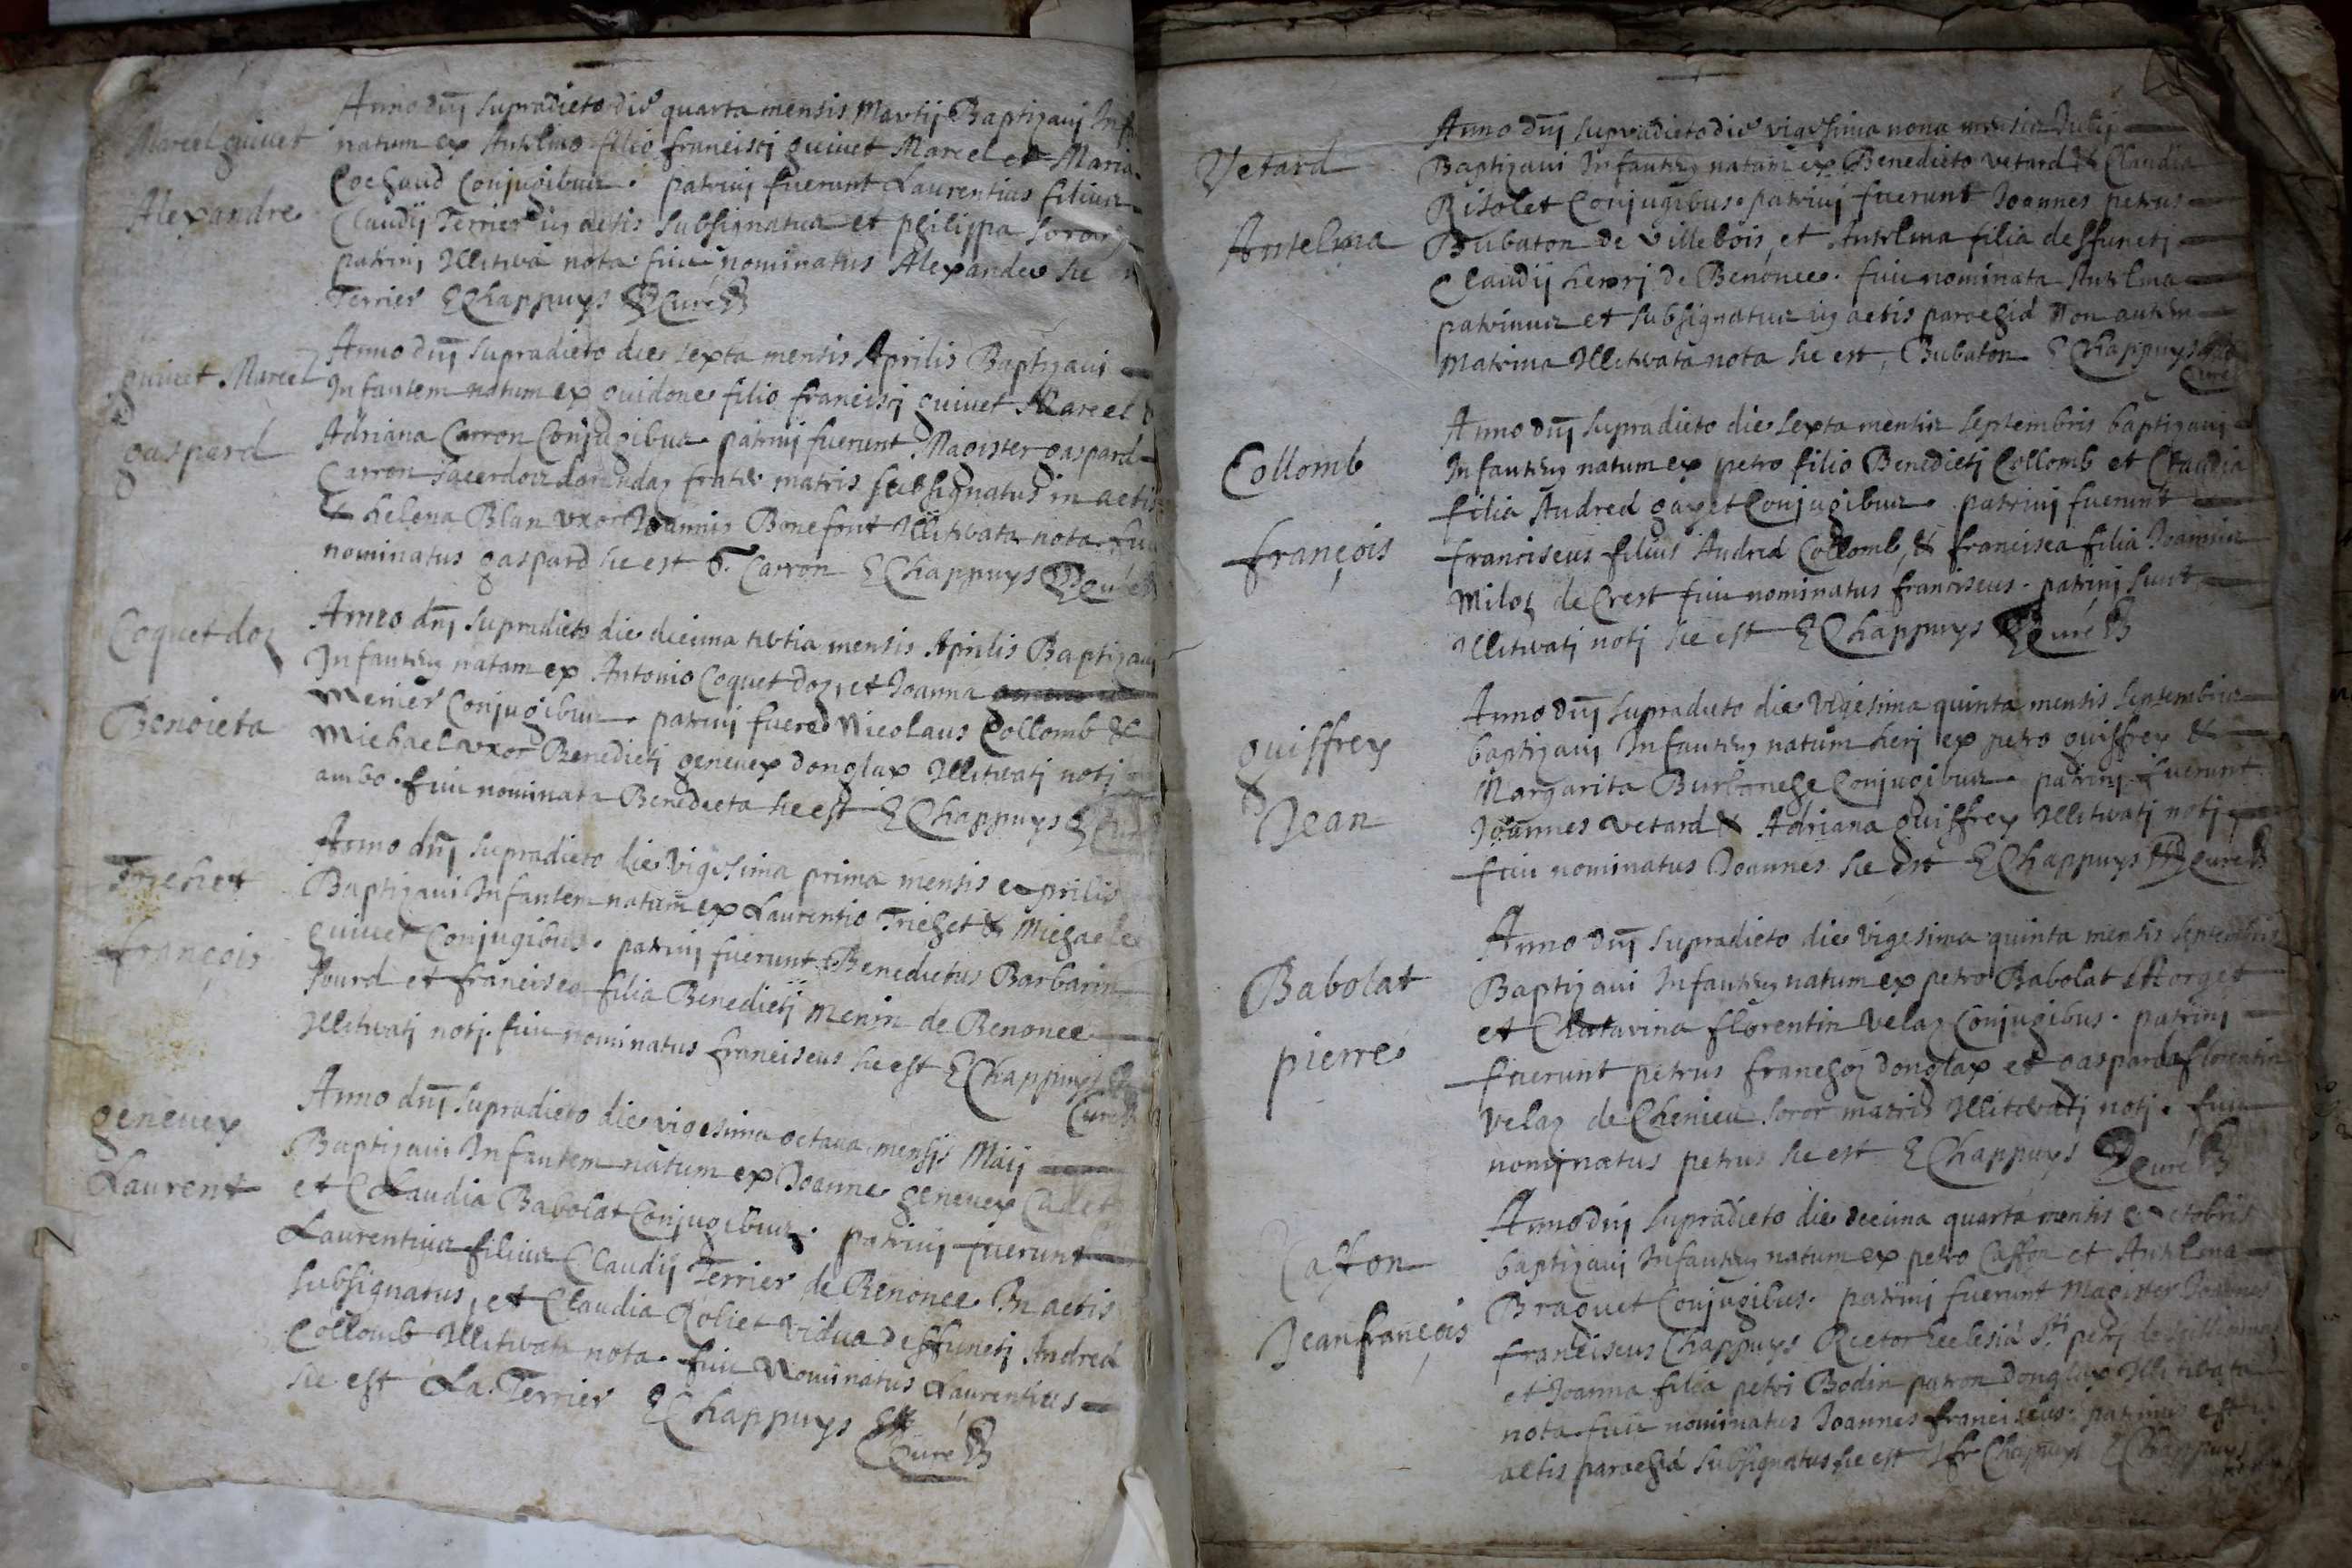 Marcel guivet
Alexandre
Anno dnj supradicto die quarta mensis Martij Baptizavj
natum ex Antelmo filio francisci guivet Marcel et Maria
Cochaud Conjugibus. patrinj fuerunt Laurentius filius
Claudij Terrier in actis subsignatus et philippa soror
patrinj Illiterata nota fuit nominatus Alexander sic
Terrier E Chappuys Curé
guivet Marcel
gaspard
Anno dnj supradicto die sexta mensis Aprilis Baptizavi
Infantem natum ex guidone filio francisci guivet Marcel
Adriana Carron Conjugibus. patrinj fuerunt Magister gaspard
Carron sacerdos frater matris subsignatus in actis
& helena Blan uxor Joannis Bonefont Illiterata nota fuit
nominatus gaspard sic est G. Carron E Chappuys Curé
Coquet doz
Benoicta
Anno dnj supradicto die decima tertia mensis Aprilis Baptizavj
Infantem natam ex Antonio Coquet doz, et Joanna
Menier Conjugibus. patrinj fuere Nicolaus Collomb &
Michael uxor Benedictj genevex donglax Illiteratj notj
ambo. fuit nominata Benedicta sic est E Chappuys Curé
françois
Anno dnj supradicto die vigesima prima mensis Aprilis
Baptizavi Infantem natum ex Laurentio Trichet & Michaele
guivet Conjugibus. patrinj fuerunt Benedictus Barbarin
sourd et francisca filia Benedictj Menin de Benonce
Illiteratj notj. fuit nominatus franciscus sic est E Chappuys
Curé
genevex
Laurent
Anno dnj supradicto die vigesima octava mensis Maij
Baptizavi Infantem natum ex Joanne genevex Cadet
et Claudia Babolat Conjugibus. patrinj fuerunt
Laurentius filius Claudij Terrier de Benonce In actis
subsignatus, et Claudia Roliet vidua deffunctj Andreæ
Collomb Illiterata nota. fuit Nominatus Laurentius
sic est La. Terrier E Chappuys
Curé
Vetard
Antelma
Anno dnj supradicto die vigesima nona mensis Julij
Baptizavi Infantem natam ex Benedicto vetard & Claudia
Risolet Conjugibus. patrinj fuerunt Joannes petrus
Bubaton de Villebois, et Antelma filia deffunctj
Claudij henrj de Benonce. fuit nominata Antelma
patrinus et subsignatus in actis parochiæ non autem
Matrina Illiterata nota sic est, Bubaton E Chappuys
Curé
Collomb
françois
Anno dnj supradicto die sexta mensis septembris baptizavj
Infantem natum ex petro filio Benedictj Collomb et Claudia
filia Andreæ gayet Conjugibus. patrinj fuerunt
franciscus filius Andreæ Collomb, & francisca filia Joannis
Miloz de Crest fuit nominatus franciscus. patrinj sunt
Illiteratj notj sic est E Chappuys Curé
guiffrey
Jean
Anno dnj supradicto die vigesima quinta mensis septembris
baptizavj Infantem natum herj ex petro guiffrey &
Margarita Conjugibus. patrinj fuerunt
Joannes vetard & Adriana guiffrey Illiteratj notj
fuit nominatus Joannes sic est E Chappuys Curé
Babolat
pierre
Anno dnj supradicto die vigesima quinta mensis septembris
Baptizavi Infantem natum ex petro Babolat Morget
et Chatarina florentin velaz Conjugibus. patrinj
fuerunt petrus franchoz donglax et gasparda florentin
velaz de Chenieu soror matris Illiteratj notj. fuit
nominatus petrus sic est E Chappuys Curé
Caffon
Jean françois
Anno dnj supradicto die decima quarta mensis octobris
baptizavj Infantem natum ex petro Caffon et Antelma
Braguet Conjugibus. patrinj fuerunt Magister Joannes
franciscus Chappuys Rector Ecclesiæ Sti petrj de
et Joanna filia petri Bodin patron donglax Illiterata
nota fuit nominatus Joannes franciscus. patrinus est in
actis parochiæ subsignatus sic est J fr Chappuys E Chappuys